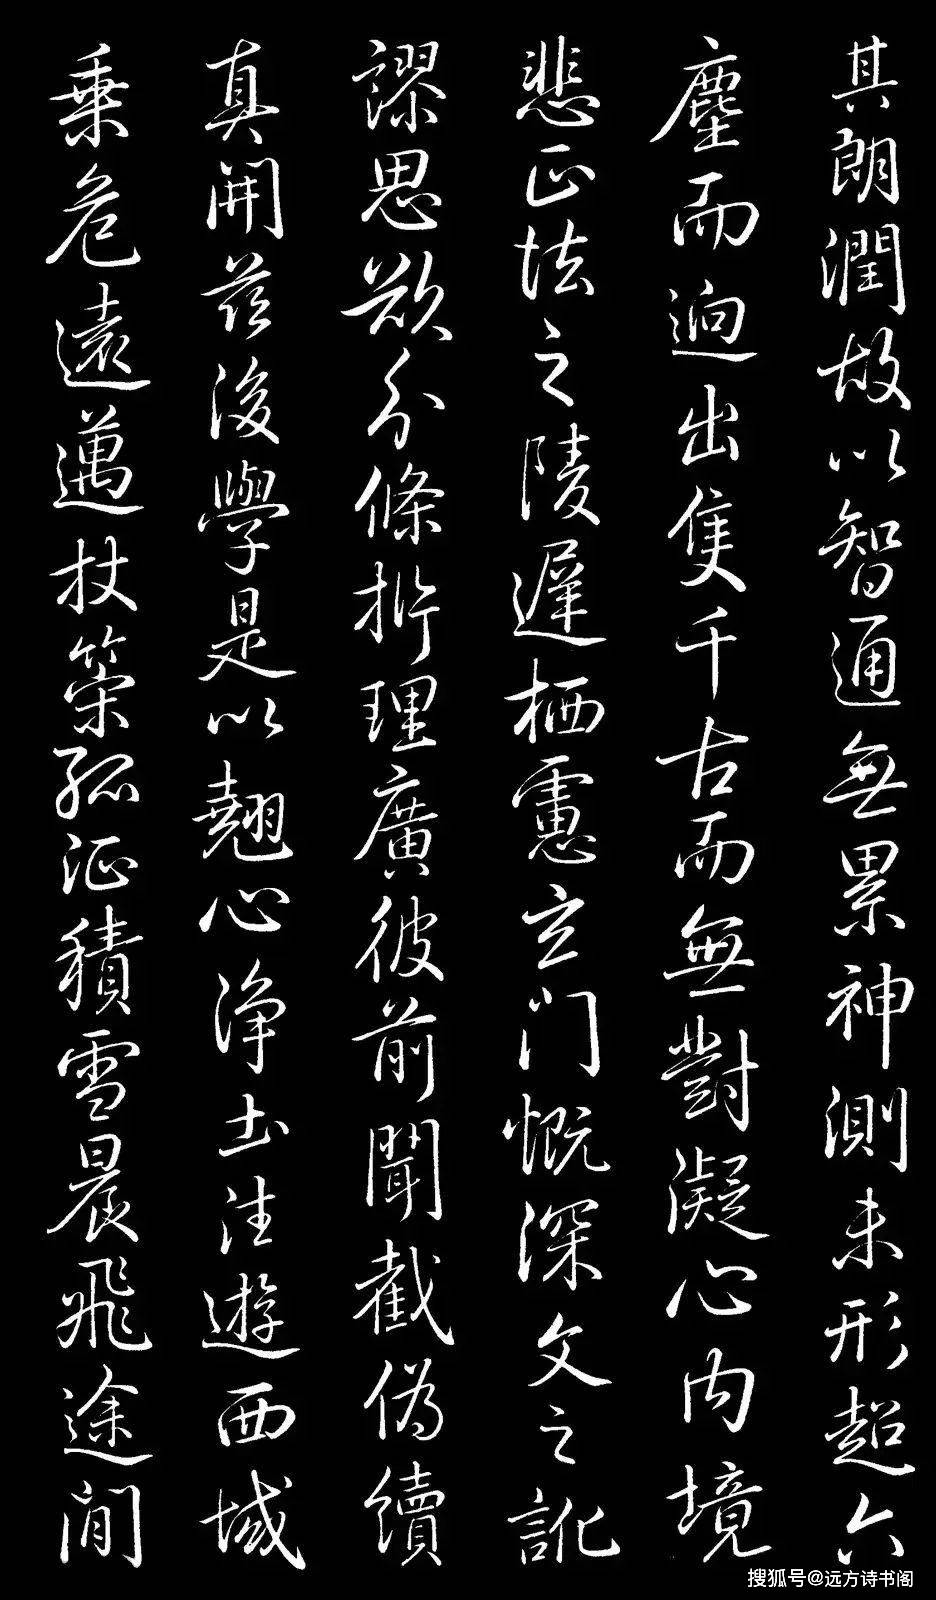 其朗潤故以智通無累神測未形超六
塵而迥出隻千古而無對凝心內境
悲正法之陵遲栖慮玄門慨深文之訛
謬思欲分條析理廣彼前聞截偽續
真開茲後學是以翹心淨土往遊西域
乗危遠邁杖策孤征積雪晨飛途閒
搜狐号@远方诗书阁